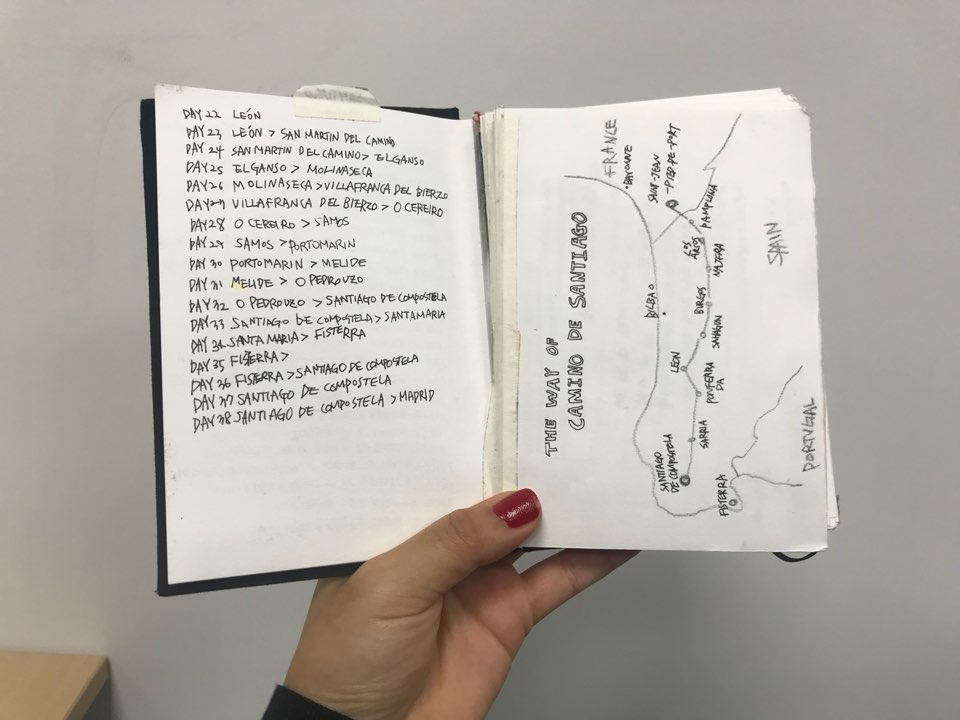 DAY 22 LEÓN
DAY 23 LEÓN > SAN MARTIN DEL CAMINO
DAY 24 SAN MARTIN DEL CAMINO > ELGANSO
DAY 25 ELGANSO > MOLINASECA
DAY 26 MOLINASECA > VILLAFRANCA DEL BIERZO
DAY 27 VILLAFRANCA DEL BIERZO > O CEREIRO
DAY 28 O CEREIRO > SAMOS
DAY 29 SAMOS > PORTOMARIN
DAY 30 PORTOMARIN > MELIDE
DAY 31 MELIDE > O PEDROUZO
DAY 32 O PEDROUZO > SANTIAGO DE COMPOSTELA
DAY 33 SANTIAGO DE COMPOSTELA > SANTAMARIA
DAY 34 SANTA MARIA > FISTERRA
DAY 35 FISTERRA >
DAY 36 FISTERRA > SANTIAGO DE COMPOSTELA
DAY 37 SANTIAGO DE COMPOSTELA
DAY 38 SANTIAGO DE COMPOSTELA > MADRID
THE WAY OF
CAMINO DE SANTIAGO
FRANCE
BAYONNE
SAINT-JEAN
-PIED-DE-PORT
PAMPLONA
LOS
ARCOS
NAJERA
BILBAO
BURGOS
SAHAGUN
LEON
PONFERRA
DA
SARRIA
SANTIAGO
DE COMPOSTELA
FISTERRA
SPAIN
PORTUGAL